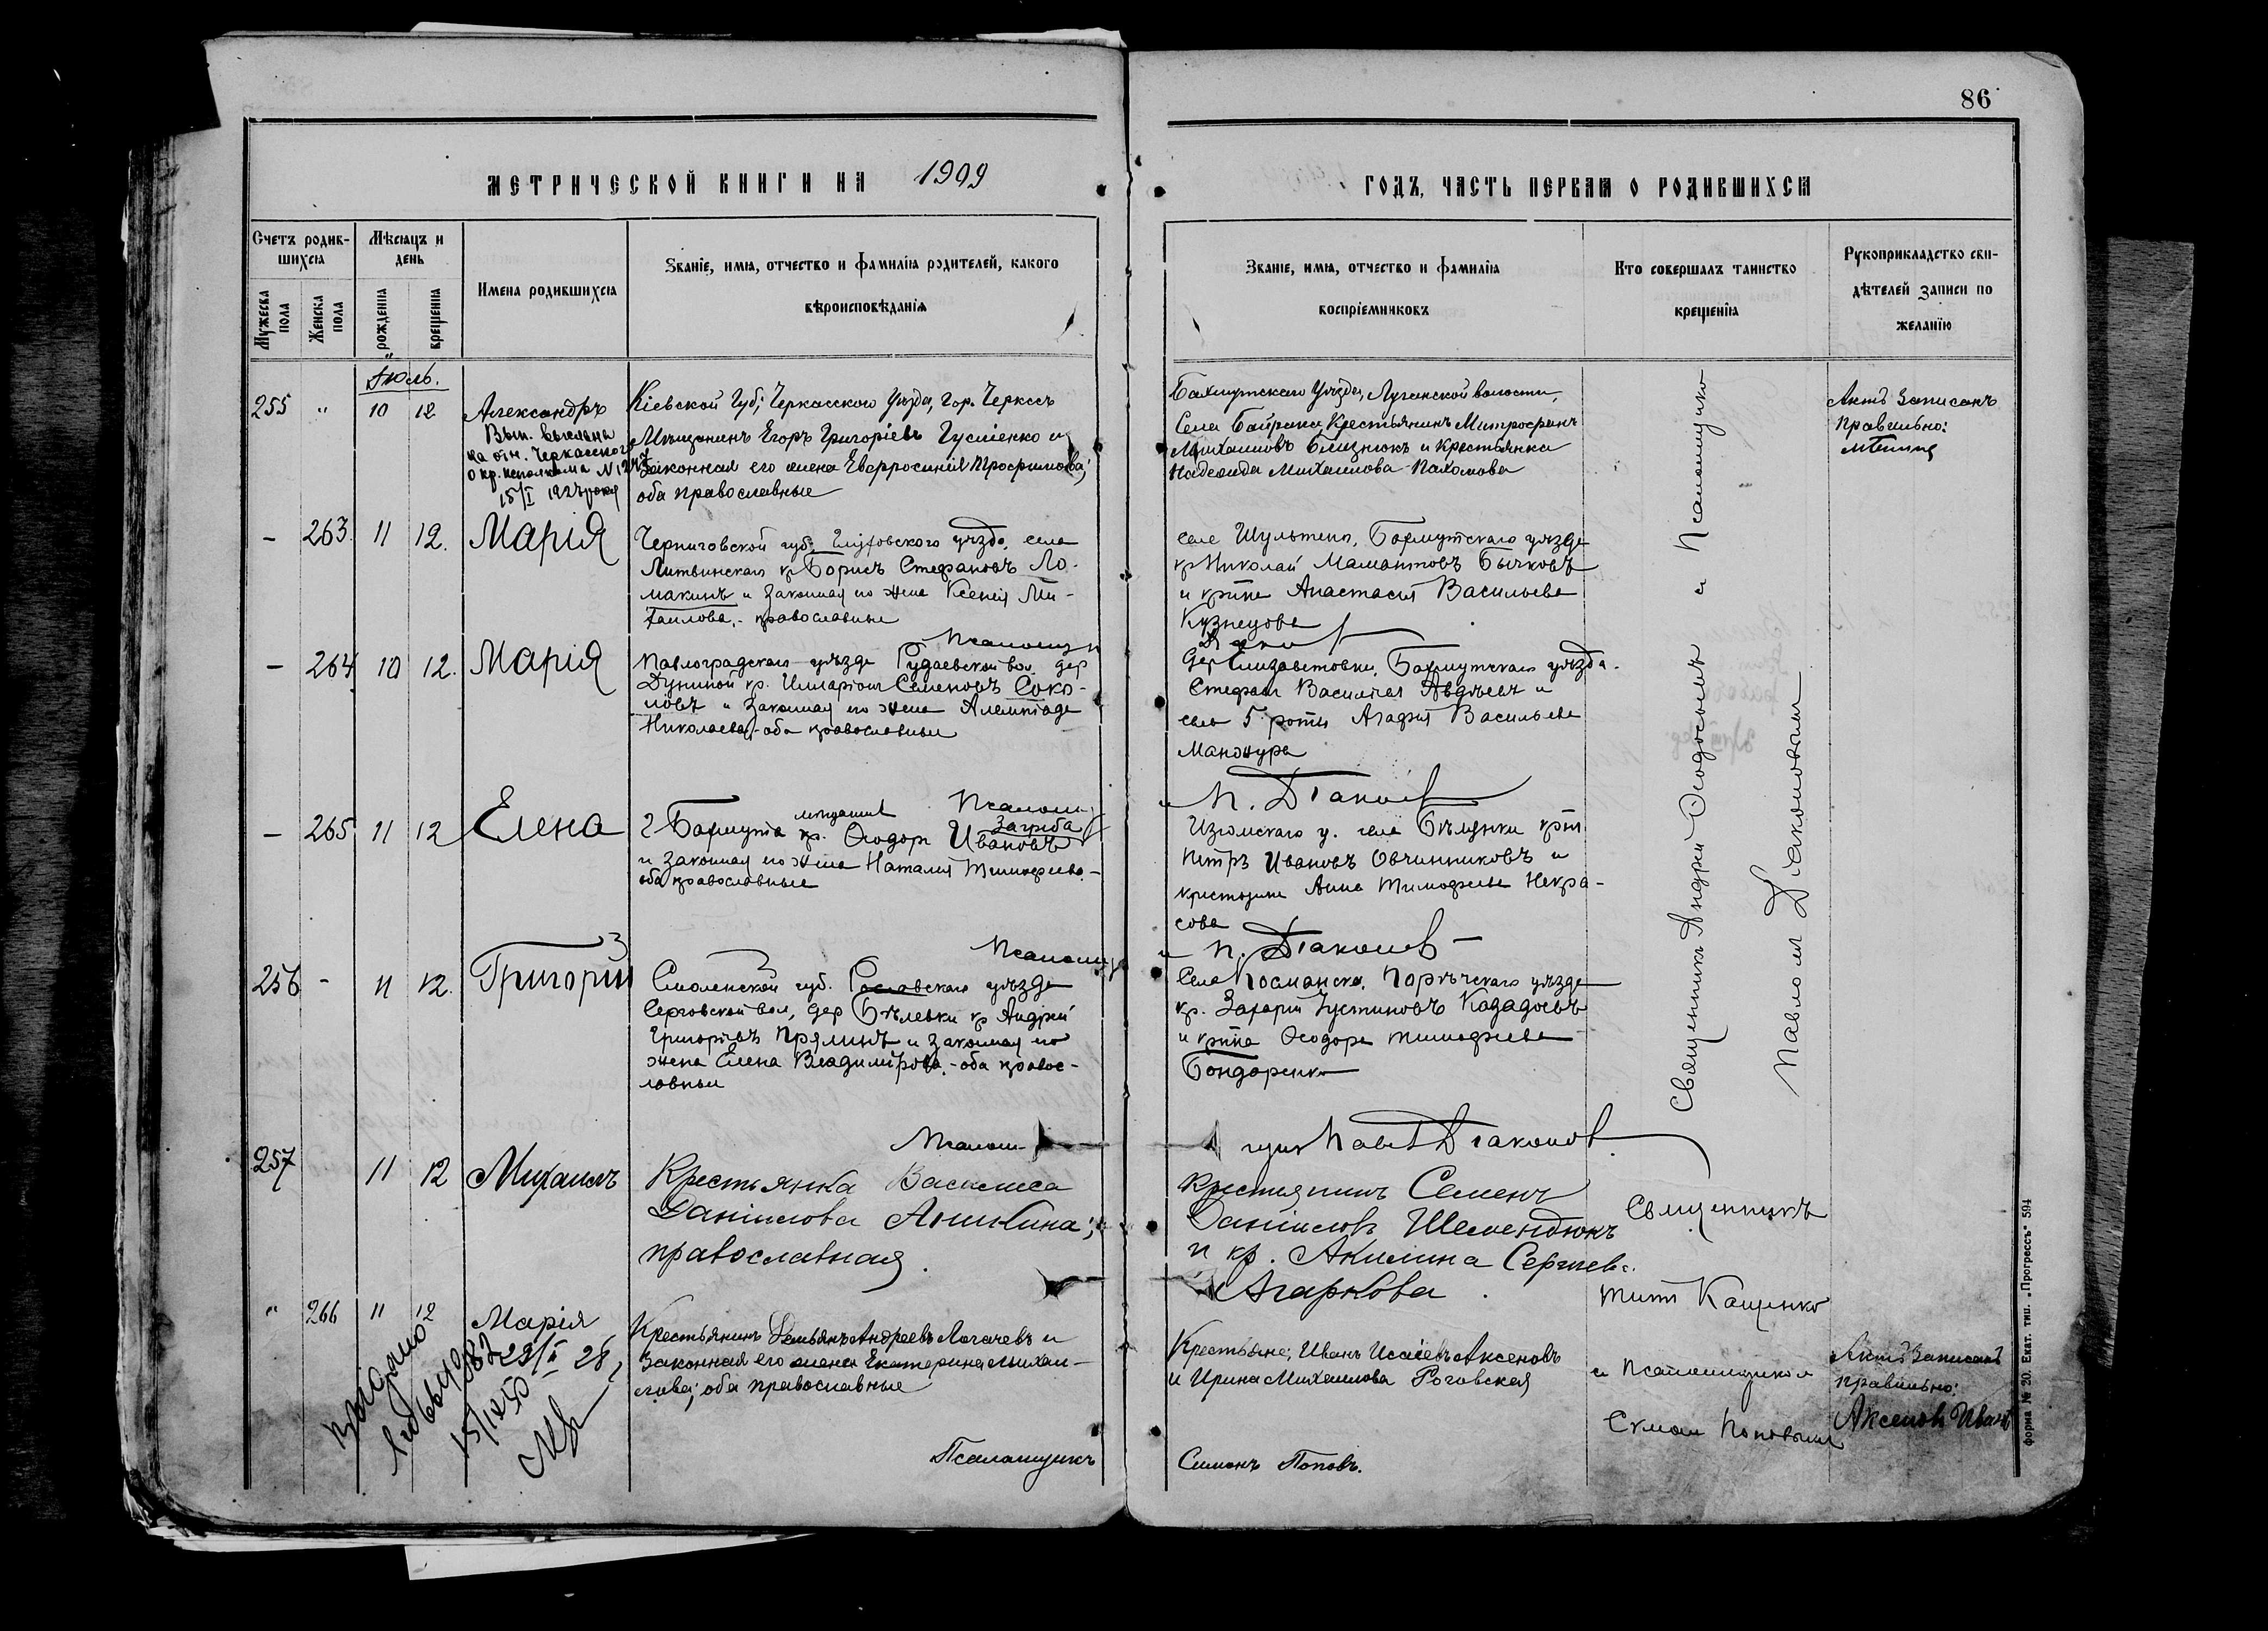 86
МЕТРИЧЕСКОЙ КНИГИ НА 1909
ГОДЪ, ЧАСТЬ ПЕРВАЯ О РОДИВШИХСЯ
Счетъ родив-
шихся
Мужеска
пола
Женска
пола
Мѣсяцъ и
день
рожденія
крещенія
Имена родившихся
Званіе, имя, отчество и фамилія родителей, какого
вѣроисповѣданія
Званіе, имя, отчество и фамилія
воспріемниковъ
Кто совершалъ таинство
крещенія
Рукоприкладство сви-
дѣтелей записи по
желанію
Іюль.
255 " 10 12 Александръ
Вып. выслана
на отн. Черкасского
Окр. исполкома
15/I
Кіевской Губ; Черкасскаго уѣзда, гор. Черкасъ
Мѣщанинъ Егоръ Григоріевъ Гусіенко и
законная его жена Евфросинія Трофимова;
оба православные
Бахмутскаго Уѣзда, Луганской волости,
Села Байрака Крестьянинъ Митрофанъ
Михаиловъ Близнюкъ и Крестьянка
Надежда Михаилова Пахомова
Актъ записанъ
правильно:
– 263 11 12. Марія
Черниговской губ. Глуховскаго уѣзда, села
Литвинскаго кр Борисъ Стефановъ Ло-
макинъ и законная его жена Ксенія Ми-
хаилова, - православные
Псаломщ
села Шульгина, Бахмутскаго уѣзда
кр Николай Мамантовъ Бычковъ
и кр-нка Анастасія Васильева
Кузнецова
– 264 10 12. Марія
Павлоградскаго уѣзда Рудаевской вол, дер
Дуниной кр. Илларіонъ Семеновъ Соко-
ловъ и законная его жена
Николаева, - оба православные
дер Елизаветовки, Бахмутскаго уѣзда.
Стефанъ Васильевъ Авдѣевъ и
села 5 роты Агафія Васильева
Манжура
Псалом
П. Дьяконовъ
– 265 11 12 Елена
г Бахмута мѣщанинъ кр. Ѳеодоръ Ивановъ Загреба
и законная его жена Наталія Тимофеева -
оба православные
Изюмскаго у. села кр-нъ
Петръ Ивановъ Овчинниковъ и
крестьянка Анна Тимофеева Некра-
сова
Псаломщ
и П. Дьяконовъ
256 - 11 12. Григорій
Смоленской губ. Рославскаго уѣзда
Серговской вол, дер Бѣлевки кр Андрей
Григорьевъ Прялинъ и законная его
жена Елена Владимірова. - оба правос-
лавные
Села Посманска, Порѣчскаго уѣзда
кр. Захарій Іустиновъ Казадоевъ
и кр-нка Ѳеодора Тимофеева
Бондаренко
Псалом-
щик Павелъ Дьяконовъ
Священникъ Андрей Ѳеодосьевъ и Псаломщикъ
Павломъ Дьяконовымъ
257 11 12 Михаилъ
Крестьянка Василиса
Даніилова Аникина;
православная.
крестьянинъ Семенъ
Даніиловъ Шелендюкъ
и кр. Акилина Сергіева
Агаркова.
Священникъ
Титъ Кащенко
" 266 11 12 Марія
Крестьянинъ Демьянъ Андреевъ Логачевъ и
законная его жена Екатерина Михаи-
лова; оба православные
Крестьяне; Иванъ Исаіевъ Аксеновъ
и Ирина Михаилова Роговская
и Псаломщикъ
Симонъ Поповымъ
Актъ записанъ
правильно:
Аксеновъ Иванъ
Псаломщикъ
Симонъ Поповъ.
форма № 20. Екат. тип. „Прогрессъ" 594